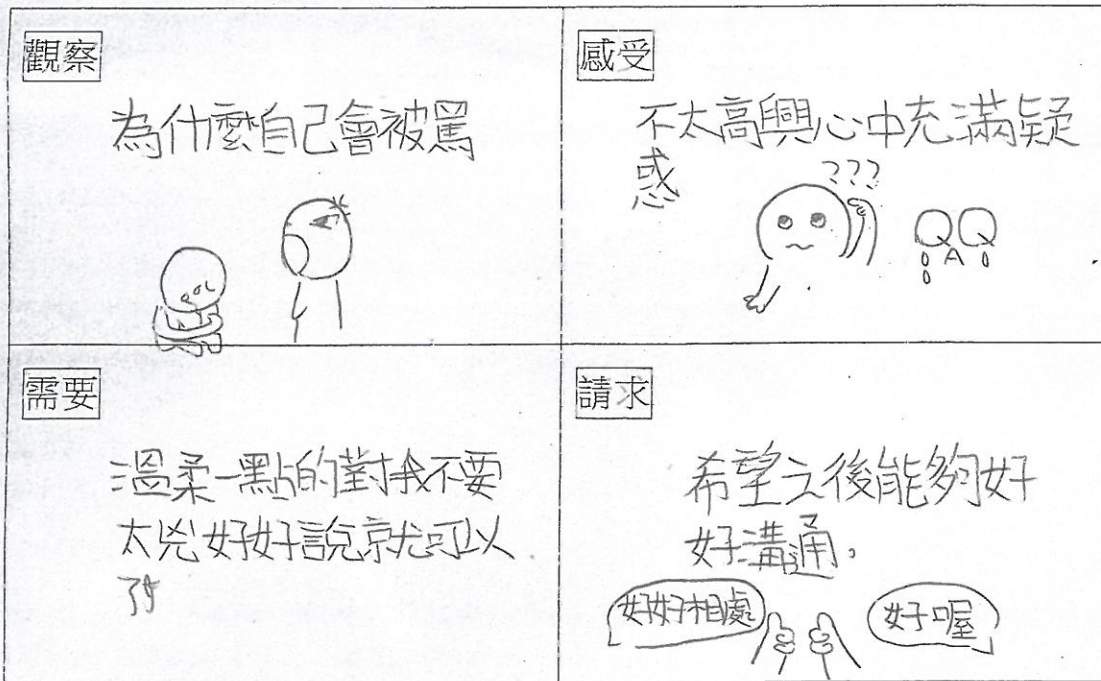 觀察
為什麼自己會被罵
感受
不太高興心中充滿疑
惑
???
QAQ
需要
溫柔一點的對我不要
太兇好好說就可以
了
請求
希望之後能夠好
好溝通。
好好相處
好喔